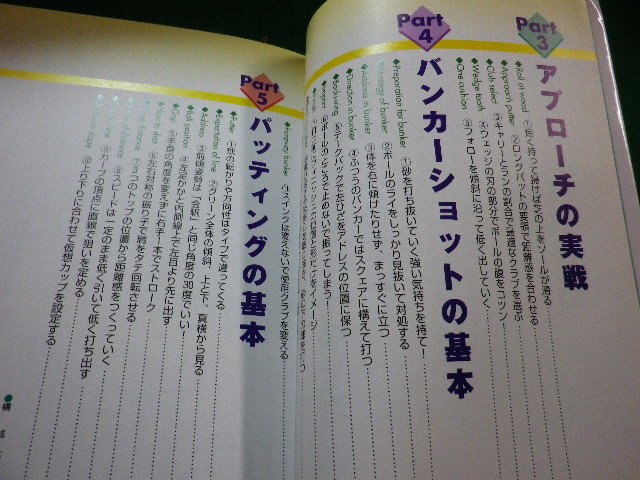 Part 3
アプローチの実戦
Ball at wood
①短く持って構けば芝の上をソールが滑る
Approach putter
②ロングパットの要領で距離感を合わせる
Club select
③キャリーとランの割合で最適なクラブを選ぶ
Wedge hook
④ウェッジの刃の部分でボールの腹をコツン!
One cushion
⑤フォローを傾斜に沿って低く出していく
Part 4
バンカーショットの基本
Preparation for bunker
①砂を打ち抜いていく強い気持ちを持て!
Strategy of bunker
②ボールのライをしっかり見抜いて対処する
Address in bunker
③体を右に傾けたりせず、まっすぐに立つ
Direction in bunker
④ふつうのバンカーではスクェアに構えて打つ
Backswing
⑤テークバックでたひざをアドレスの位置に保つ
⑥ボールのところで止めないで振ってしまう!
Fairway bunker
⑪スイングは変えないで使用クラブを変える
Part 5
パッティングの基本
Putter
①球の転がりや方向性はタイプで違ってくる
Expectation of line
②グリーン全体の傾斜、上と下、真横から見る
Address
③前傾姿勢は「会釈」と同じ角度の30度でいい!
Ball position
④左足かかと内側線上で左目より先に出す
Grip
⑤手首の角度を変えずに右手一本でストローク
⑥左右対称の振り子で肩をタテ回転させる
⑦3つのトップの位置から距離感をつくっていく
⑧スピードは一定のまま低く引いて低く打ち出す
⑨カーブの頂点に直線で狙いを定める
⑩上り下りに合わせて仮想カップを設定する